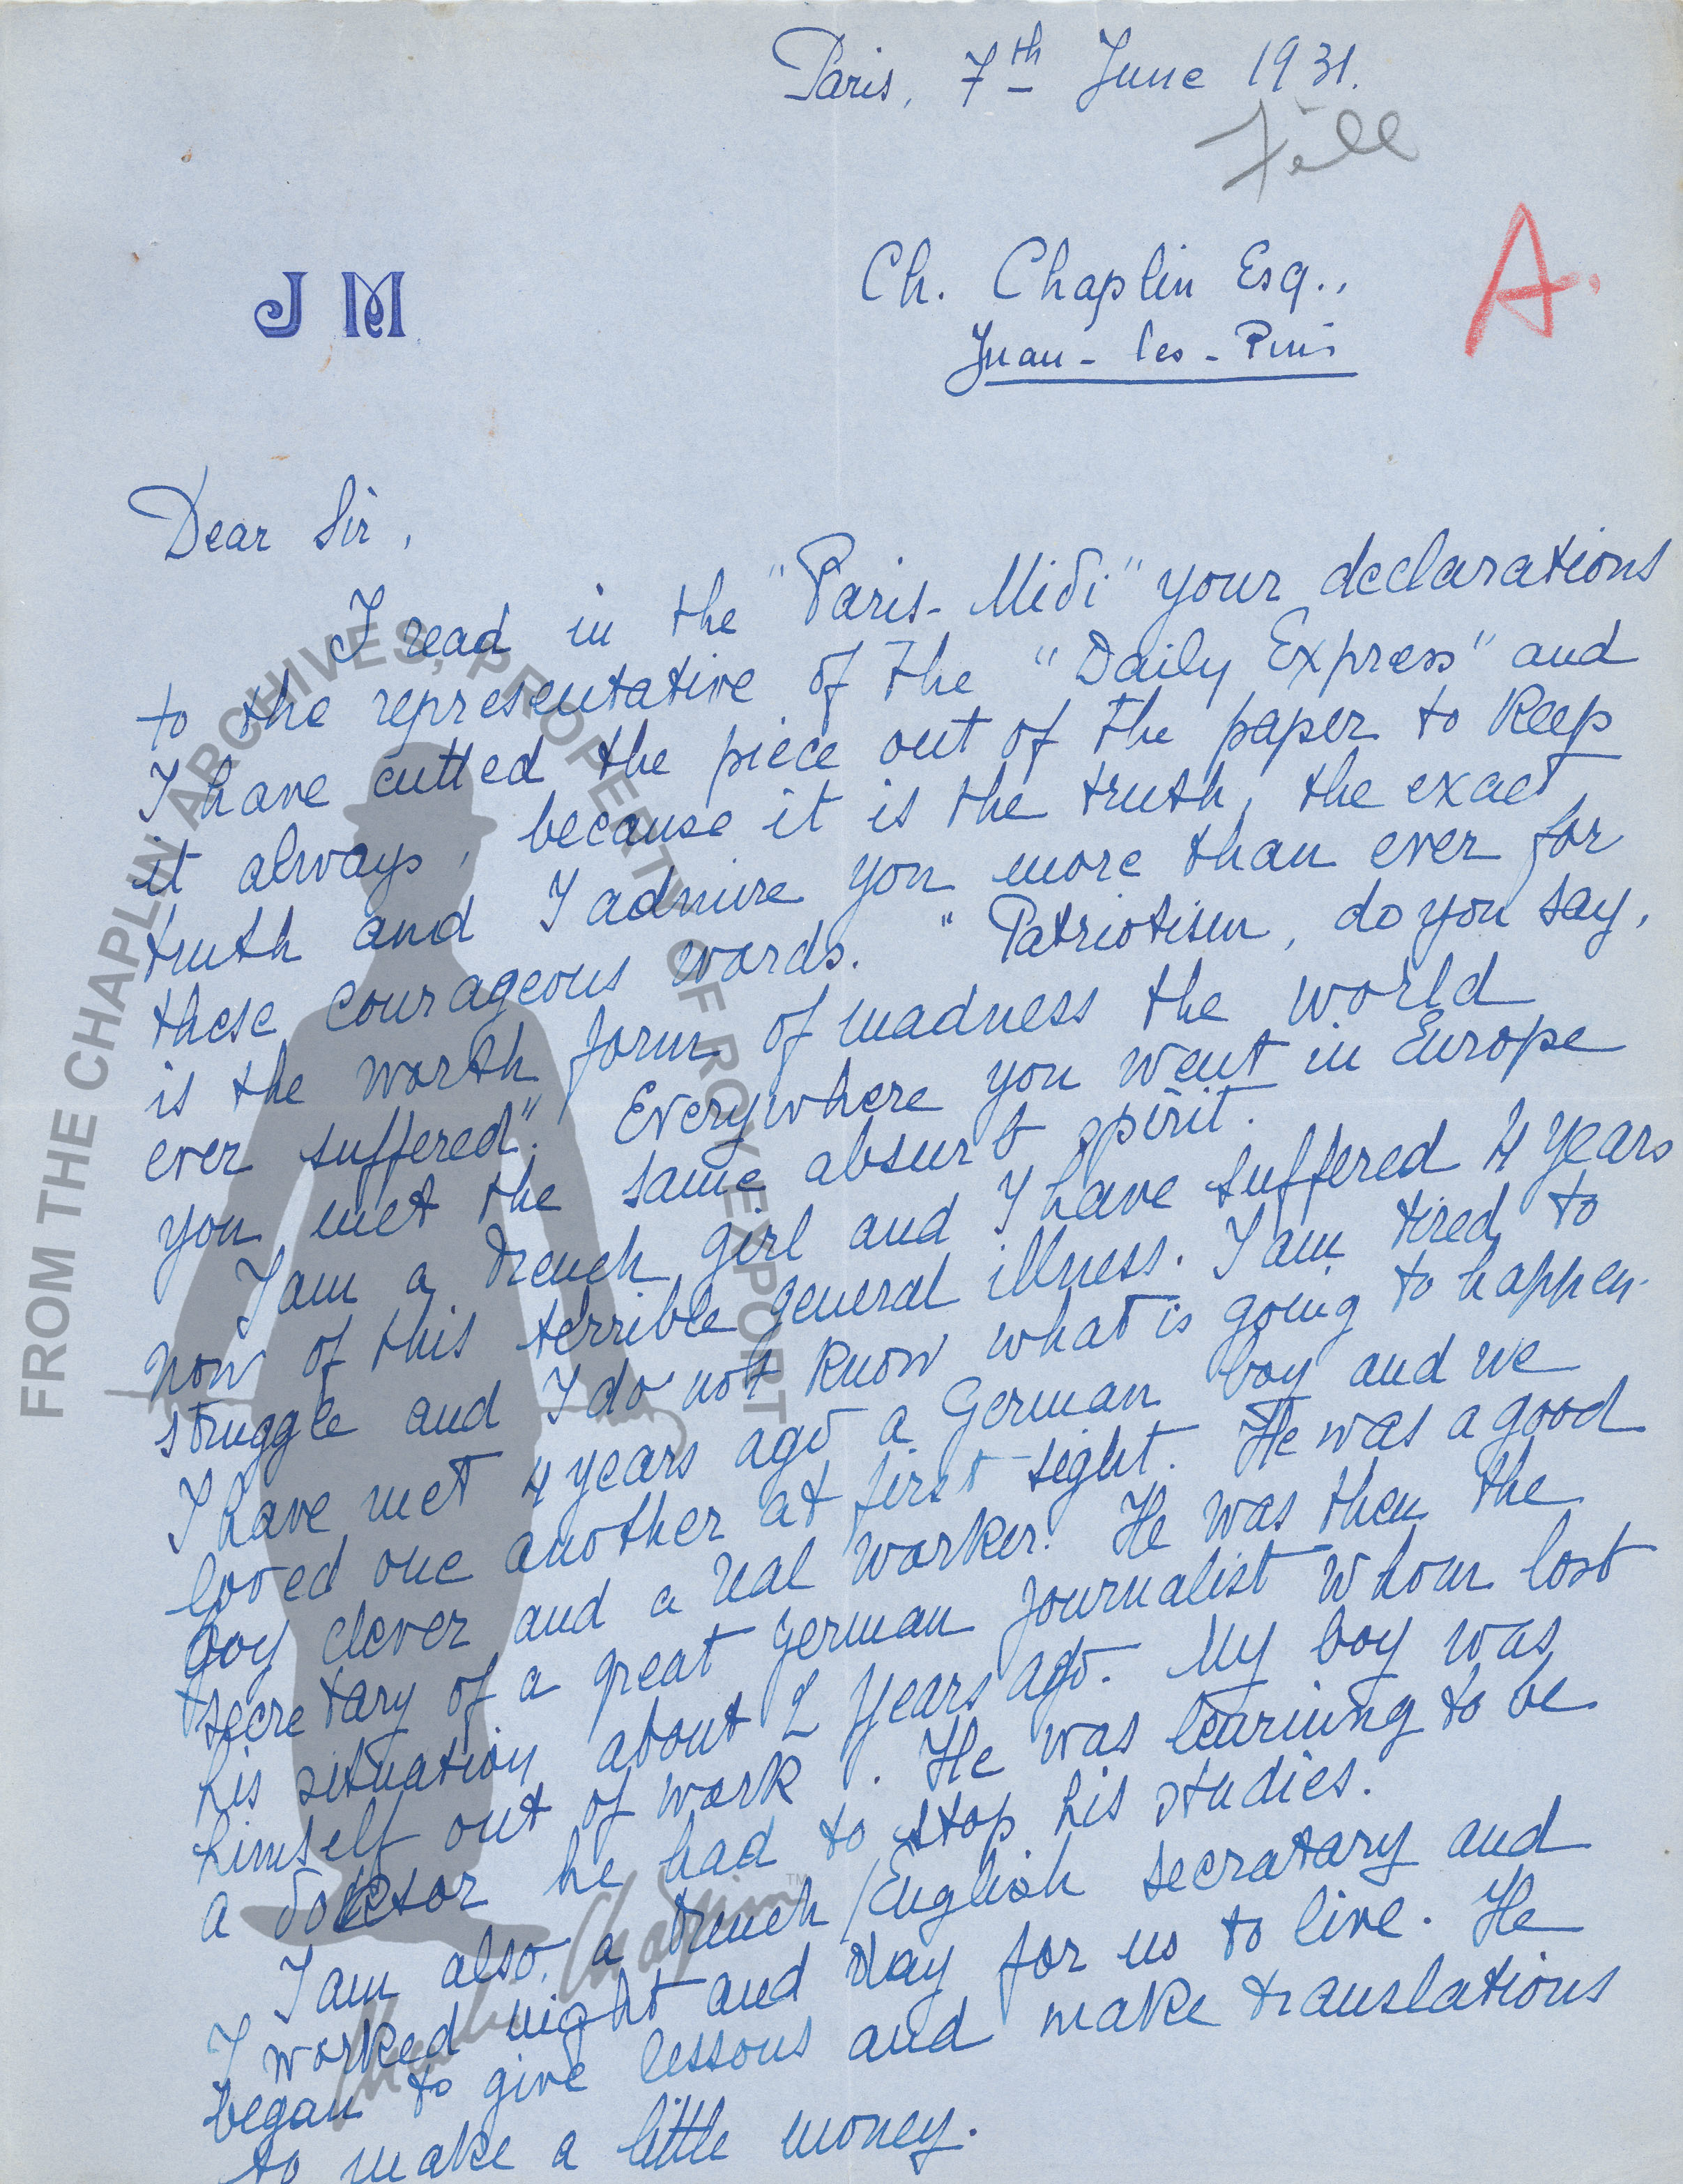 Paris, 7th June 1931.
A.
J M
Ch. Chaplin Esq.,
Juan-les-Pins
Dear Sir,
I read in the "Paris-Midi" your declarations
to the representative of the "Daily Express" and
I have cutted the piece out of the paper to keep
it always, because it is the truth, the exact
truth and I admire you more than ever for
these courageous words. "Patriotism, do you say,
is the worth form of madness the world
ever suffered". Everywhere you went in Europe
you met the same absurd spirit.
I am a french girl and I have suffered 4 years
now of this terrible general illness. I am tired to
struggle and I do not know what is going to happen.
I have met 4 years ago a German boy and we
loved one another at first sight. He was a good
boy clever and a real worker. He was then the
secretary of a great german journalist whom lost
his situation about 2 years ago. My boy was
himself out of work. He was learning to be
a doctor he had to stop his studies.
I am also a french/English secratary and
I worked night and day for us to live. He
began to give lessons and make translations
to make a little money.
FROM THE CHAPLIN ARCHIVES, PROPERTY OF ROY EXPORT
Charlie Chaplin™